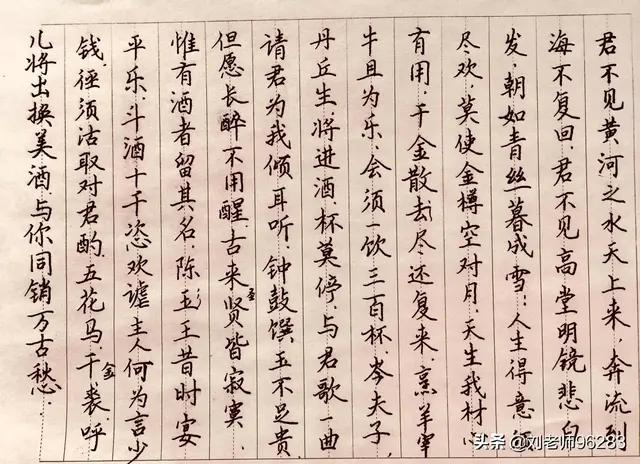 君不见黄河之水天上来，奔流到
海不复回，君不见高堂明镜悲白
发，朝如青丝暮成雪；人生得意须
尽欢，莫使金樽空对月，天生我材必
有用，千金散去尽还复来，烹羊宰
牛且为乐，会须一饮三百杯，岑夫子，
丹丘生，将进酒，杯莫停，与君歌一曲
请君为我倾耳听，钟鼓馔玉不足贵，
但愿长醉不用醒，古来圣贤皆寂寞，
惟有酒者留其名，陈玉王昔时宴
平乐，斗酒十千恣欢谑，主人何为言少
钱，径须沽取对君酌，五花马，千金裘呼
儿将出换美酒，与你同销万古愁．
头条 @刘老师96283